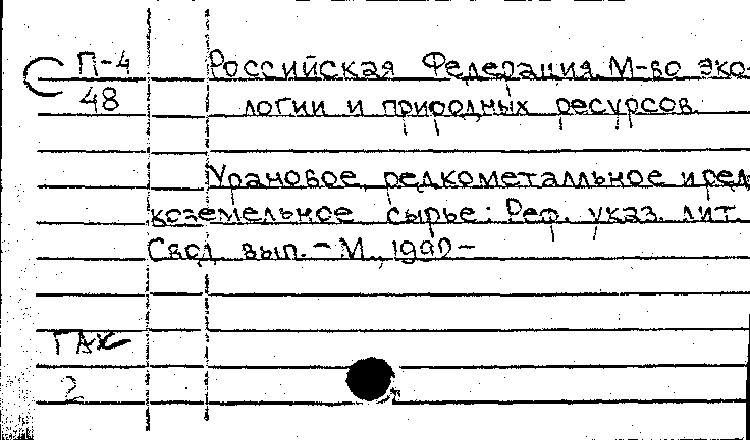 П-4 Российская Федерация. М-во эко-
48 логии и природных ресурсов.
Урановое, редкометалльное и ред
коземельное сырье: Реф. указ. лит.
Свод. вып. – М., 1990 –
ГАК
2